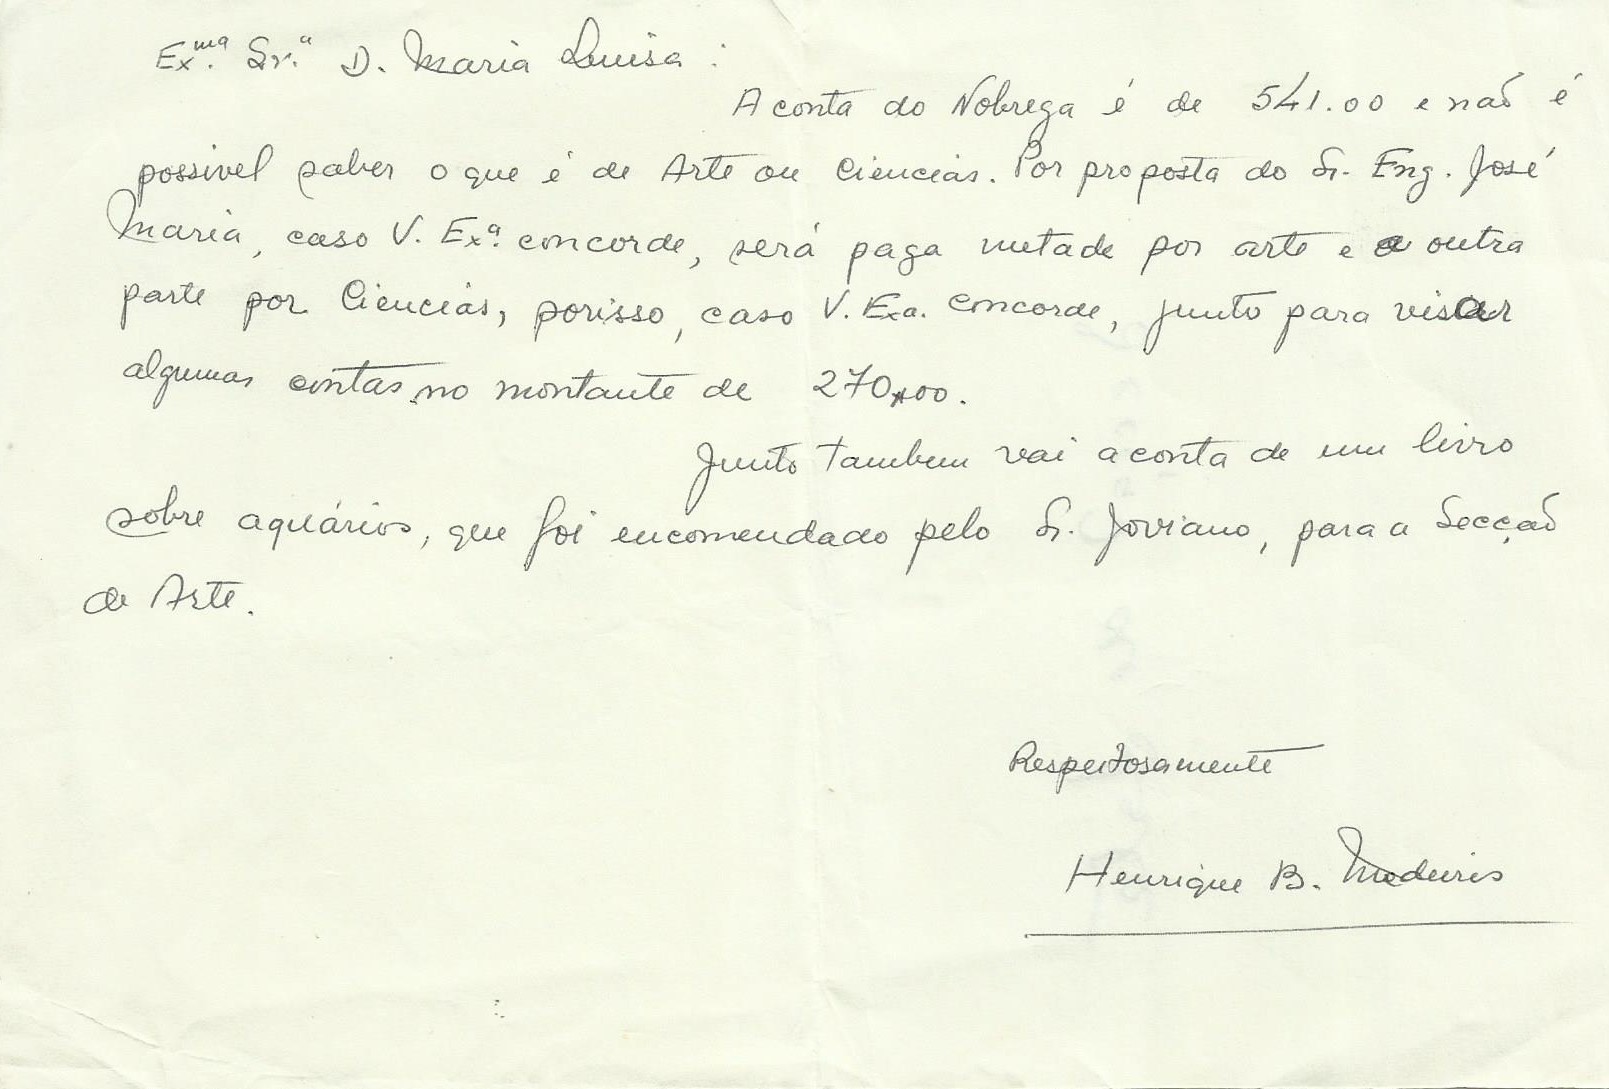 Exᵐᵃ. Sr.ª D. Maria Luisa:
A conta do Nobrega é de 541.00 e não é
possivel saber o que é de Arte ou Ciencias. Por proposta do Sr. Eng. José
Maria, caso V. Exª. concorde, será paga metade por arte e a outra
parte por Ciencias, porisso, caso V. Exa. concorde, junto para visar
algumas contas no montante de 270$00.
Junto tambem vai a conta de um livro
sobre aquários, que foi encomendado pelo Sr. Joviano, para a Secção
de Arte.
Respeitosamente
Henrique B. Medeiros